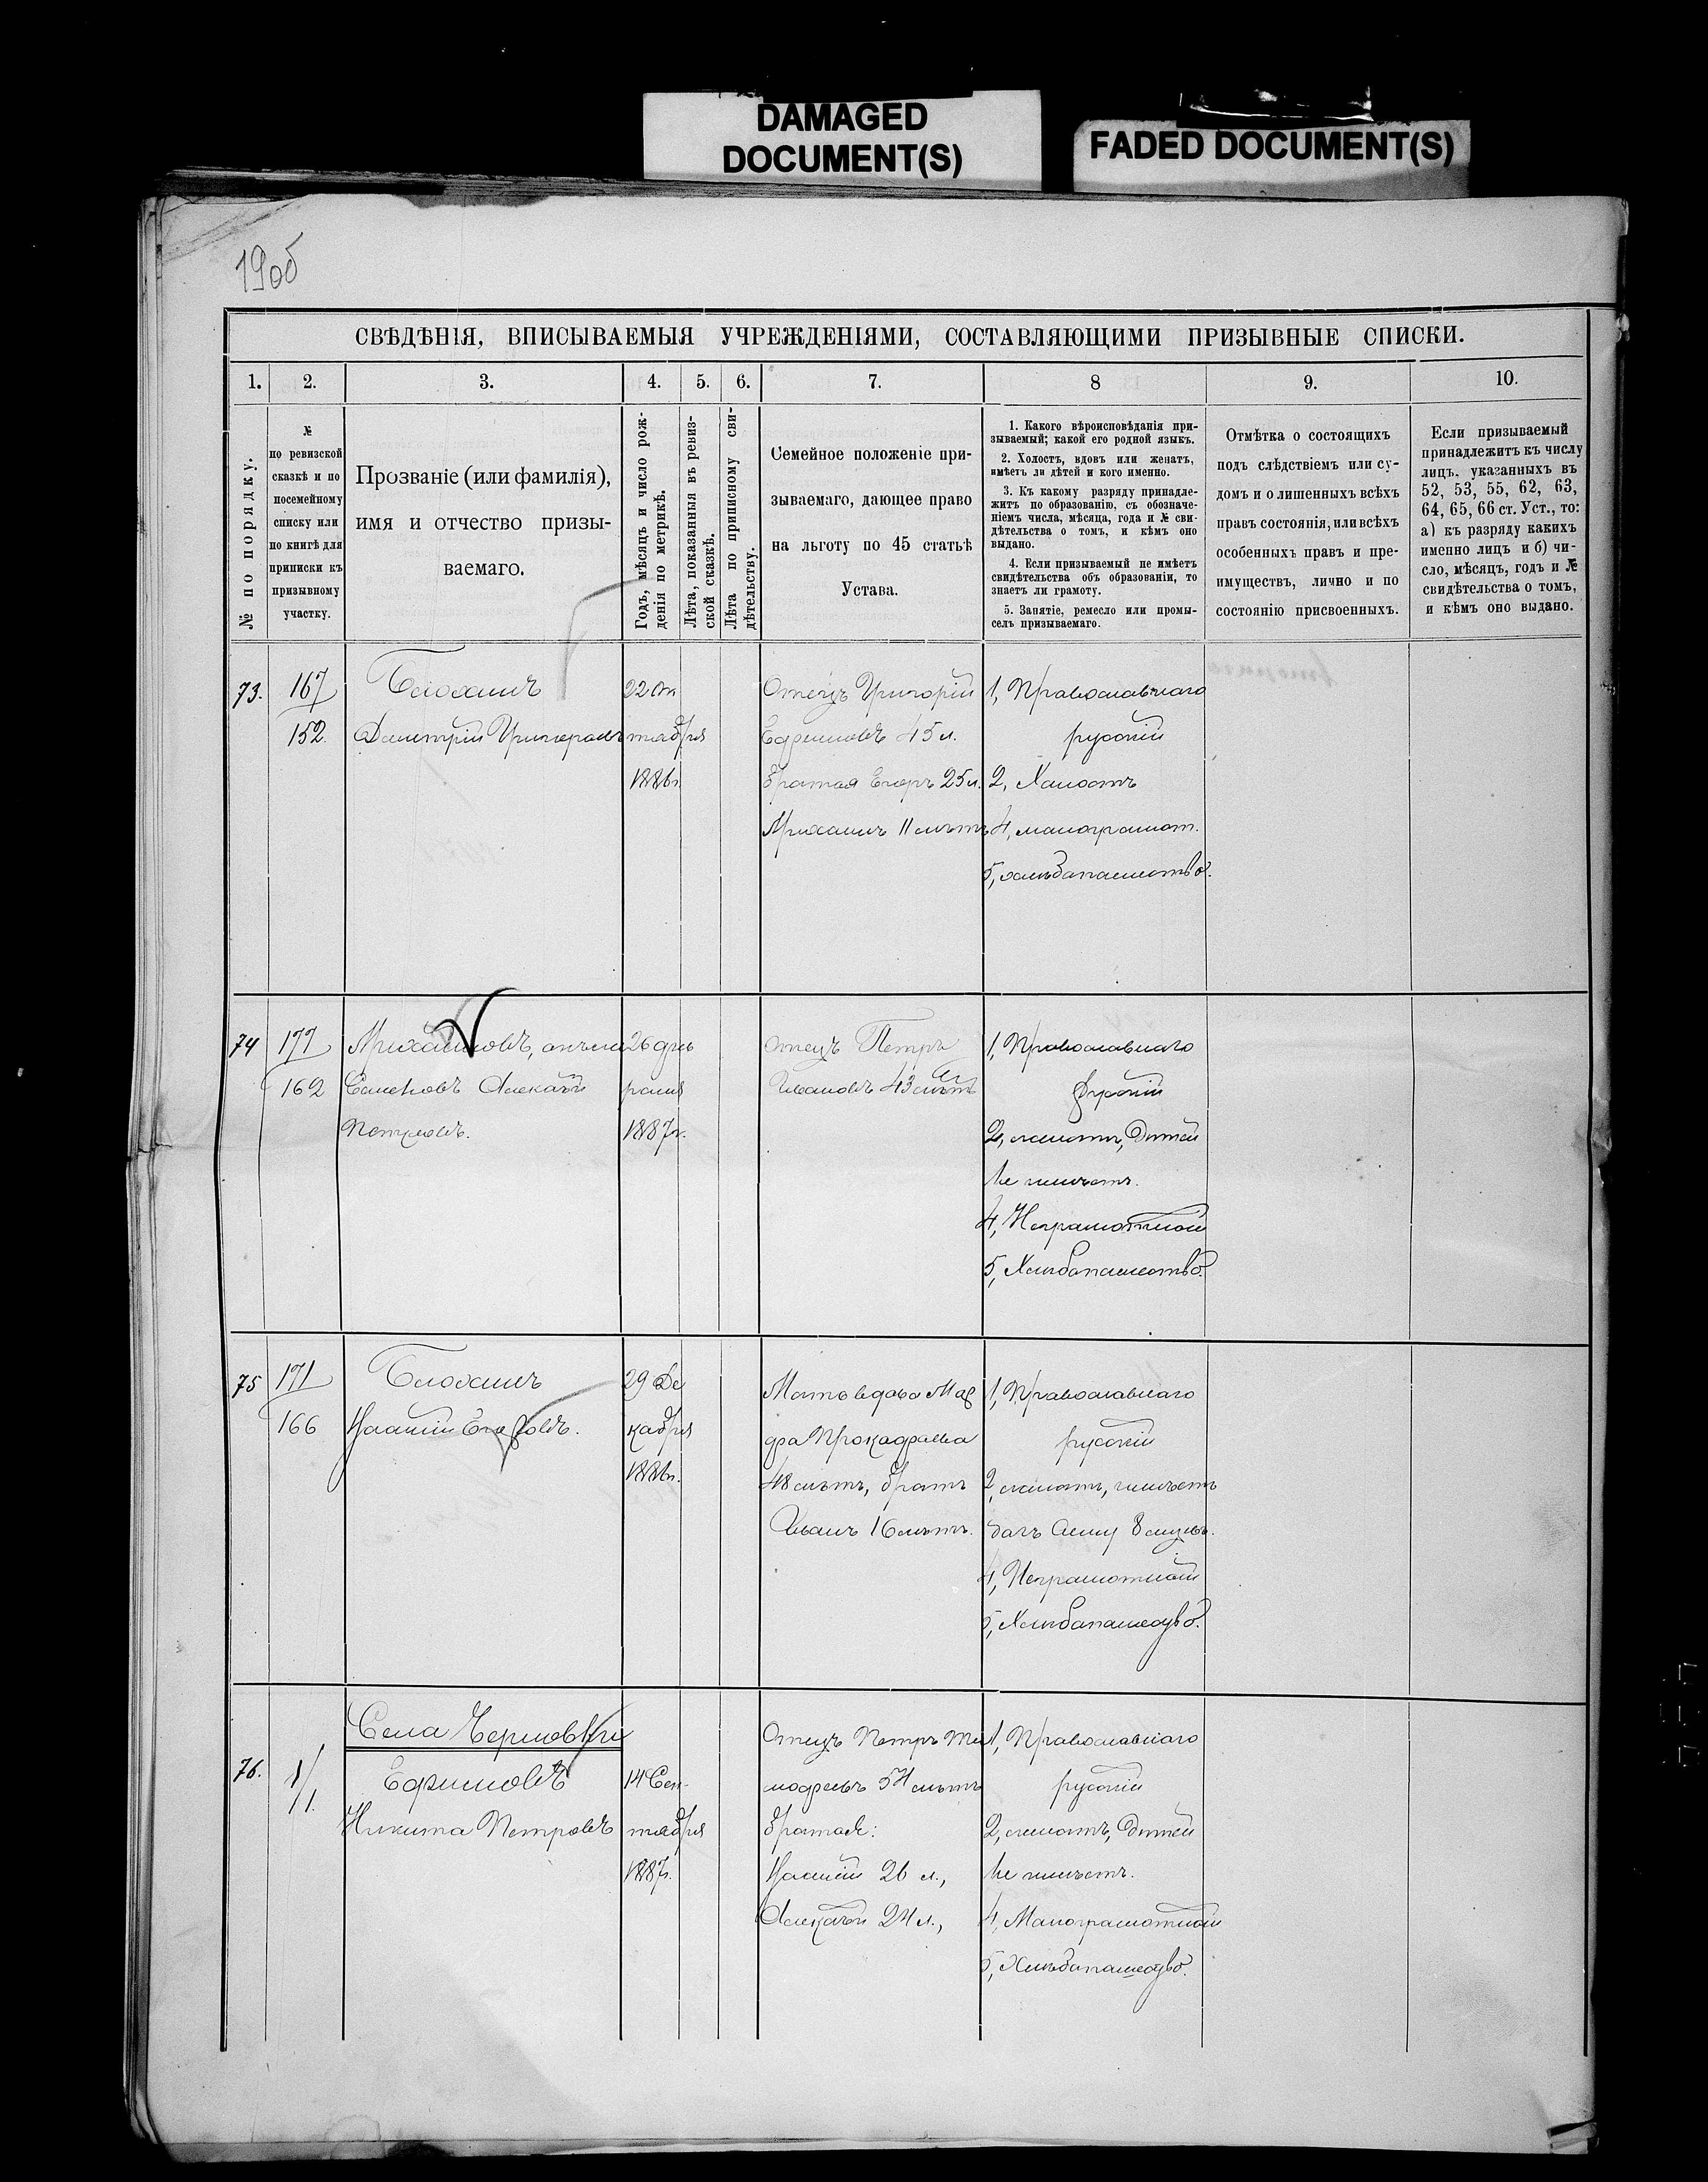 DAMAGED
DOCUMENT(S)
FADED DOCUMENT(S)
19об
СВѢДѢНІЯ, ВПИСЫВАЕМЫЯ УЧРЕЖДЕНІЯМИ, СОСТАВЛЯЮЩИМИ ПРИЗЫВНЫЕ СПИСКИ.
1. 2. 3. 4. 5. 6. 7. 8 9. 10.
№ по порядку.
№
по ревизской
сказкѣ и по
посемейному
списку или
по книгѣ для
приписки къ
призывному
участку.
Прозваніе (или фамилія),
имя и отчество призы-
ваемаго.
Годъ, мѣсяцъ и число рож-
денія по метрикѣ.
Лѣта, показанныя въ ревиз-
ской сказкѣ.
Лѣта по приписному сви-
дѣтельству.
Семейное положеніе при-
зываемаго, дающее право
на льготу по 45 статьѣ
Устава.
1. Какого вѣроисповѣданія при-
зываемый; какой его родной языкъ.
2. Холостъ, вдовъ или женатъ,
имѣетъ ли дѣтей и кого именно.
3. Къ какому разряду принадле-
житъ по образованію, съ обозначе-
ніемъ числа, мѣсяца, года и № сви-
дѣтельства о томъ, и кѣмъ оно
выдано.
4. Если призываемый не имѣетъ
свидѣтельства объ образованіи, то
знаетъ ли грамоту.
5. Занятіе, ремесло или промы-
селъ призываемаго.
Отмѣтка о состоящихъ
подъ слѣдствіемъ или су-
домъ и о лишенныхъ всѣхъ
правъ состоянія, или всѣхъ
особенныхъ правъ и пре-
имуществъ, лично и по
состоянію присвоенныхъ.
Если призываемый
принадлежитъ къ числу
лицъ, указанныхъ въ
52, 53, 55, 62, 63,
64, 65, 66 ст. Уст., то:
а) къ разряду какихъ
именно лицъ и б) чи-
сло, мѣсяцъ, годъ и №
свидѣтельства о томъ,
и кѣмъ оно выдано.
73.
167
152.
Блохинъ
Дмитрій Григорьевъ
22 Ок
тября
1886г.
Отецъ Григорій
Ефимовъ 45 л.
братья Егоръ 25 л.
Михаилъ 11 лѣтъ
1, Православнаго
русскій
2, Холостъ
4, малограмот.
5, хлѣбопашество.
74
177
162
Михайловъ, онъ же
Семеновъ Алексѣй
Петровъ.
26 фев
раля
1887г.
Отецъ Петръ
Ивановъ 43 лѣтъ
1, Православнаго
Русскій
2, женатъ, Дѣтей
не имѣетъ.
4, Неграмотной
5, Хлѣбопашество.
75
171
166
Блохинъ
Егоровъ.
29 Де
кабря
1886г.
Мать вдова
48 лѣтъ, братъ
Иванъ 16 лѣтъ.
1, Православнаго
русскій
2, женатъ, имѣетъ
дочь Анну
4, Неграмотной
5, Хлѣбопашество.
76.
1/1.
Ефимовъ
Никита Петровъ
14 Сен-
тября
1887г.
Отецъ Петръ Ти
мофеевъ 54 лѣтъ
братья:
26 л.,
Алексѣй 24 л.,
1, Православнаго
русскій
2, женатъ, Дѣтей
не имѣетъ.
4, Малограмотной
5, Хлѣбопашество.